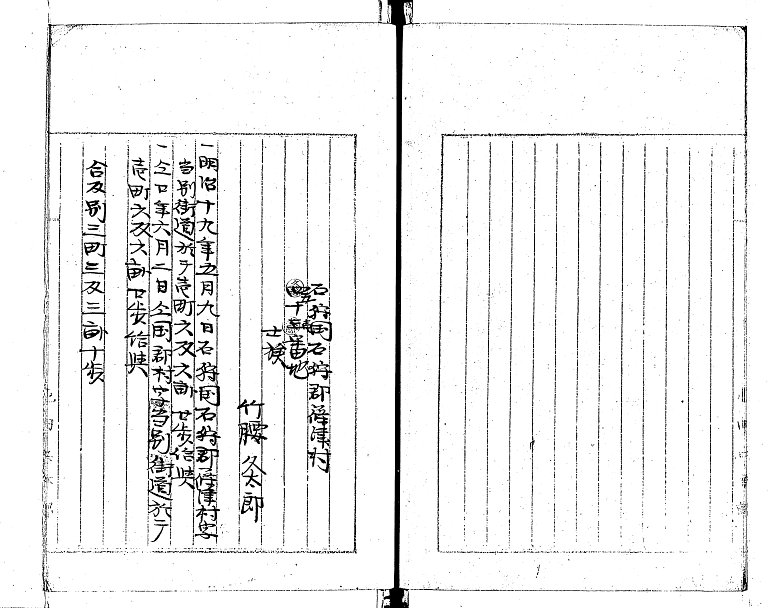 石狩国石狩郡篠津村
四十番地
士族
竹腰久太郎
一明治十九年五月九日石狩国石狩郡篠津村字
当別街道於テ壱町六反六畝廿歩給与
一仝廿年六月二日仝国郡村字当別街道於テ
壱町六反六畝廿歩給与
合反別三町三反三畝十歩